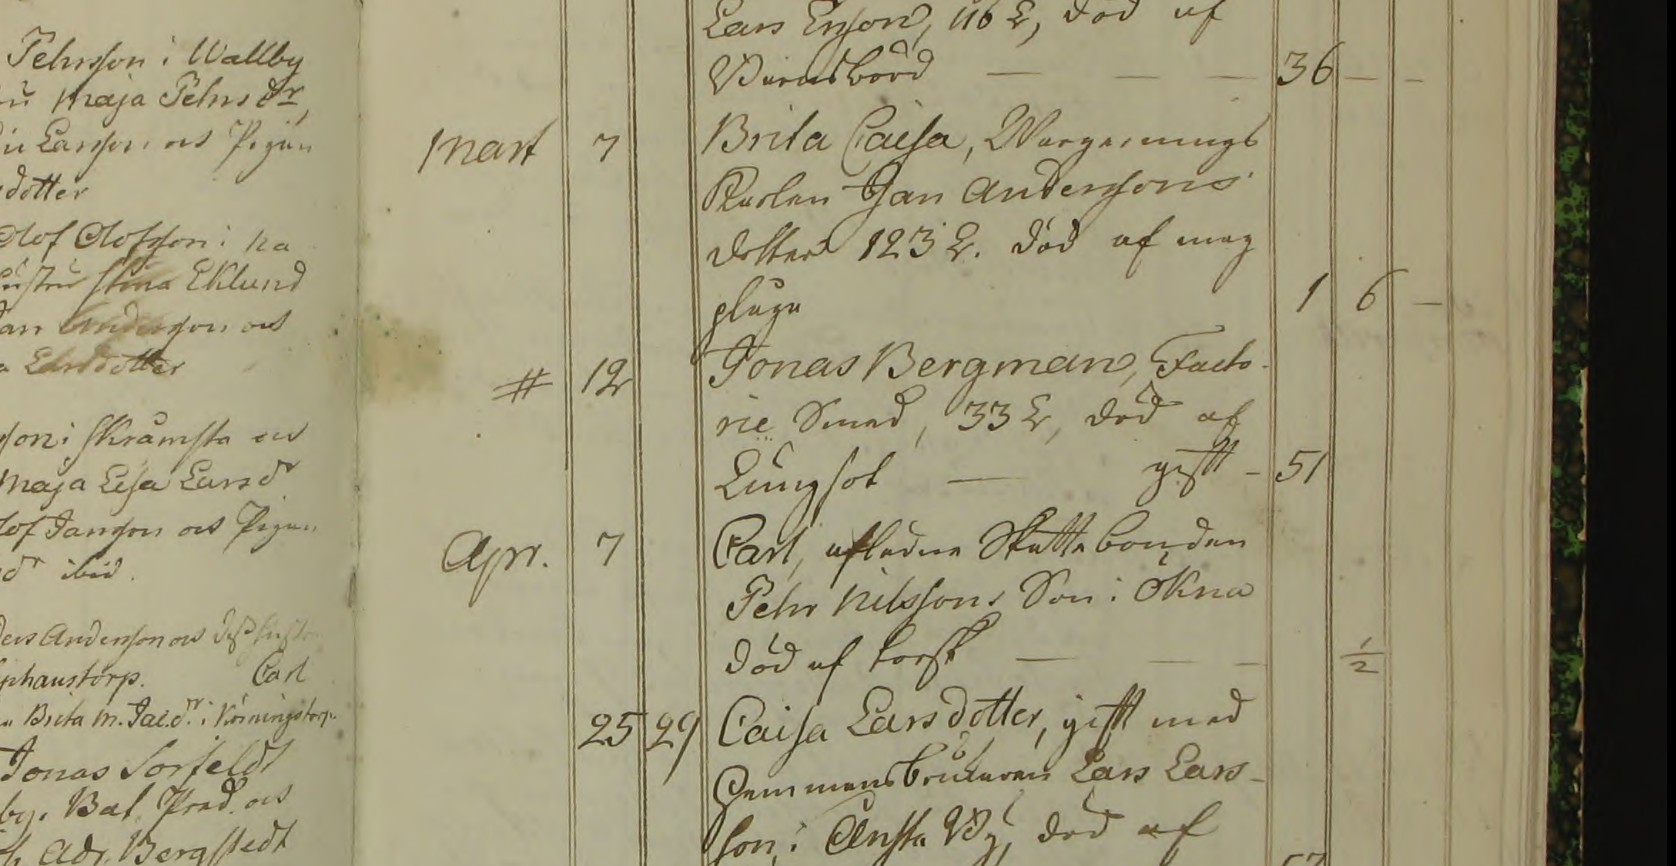 Pehrsson i Wallby
Maja Pehrsdr
Larsson och Pigan
dotter
Olof Olofsson i
hustru Stina Eklund
Jan Andersson och
Ersdotter
son i Skråmsta och
Maja Lisa Larsdr
Olof Jansson och Pigan
dr ibid.
Anders Andersson och dess hustru
phanstorp. Carl
Brita M. Jacdr i Körningstorp
Jonas Sorfeldt
by. Bat. Præd. och
Adr. Bergstedt
Lars Ersson, 116 L, död af
Barnsbörd — — — 36 — —
Mart 7 Brita Caisa, Wargernings
Karlen Jan Anderssons
dotter 123 L. död af mag
plåga 1 6 —
# 12 Jonas Bergman, Facto-
rie Smed, 33 L, död af
Lungsot — gift - 51
Apr. 7 Carl, afledne Skattebonden
Pehr Nilssons Son i Ökna
död af torsk — — — 1/2
25 29 Caisa Larsdotter, gift med
Hemmansbrukaren Lars Lars-
son, i Ansta By, död af